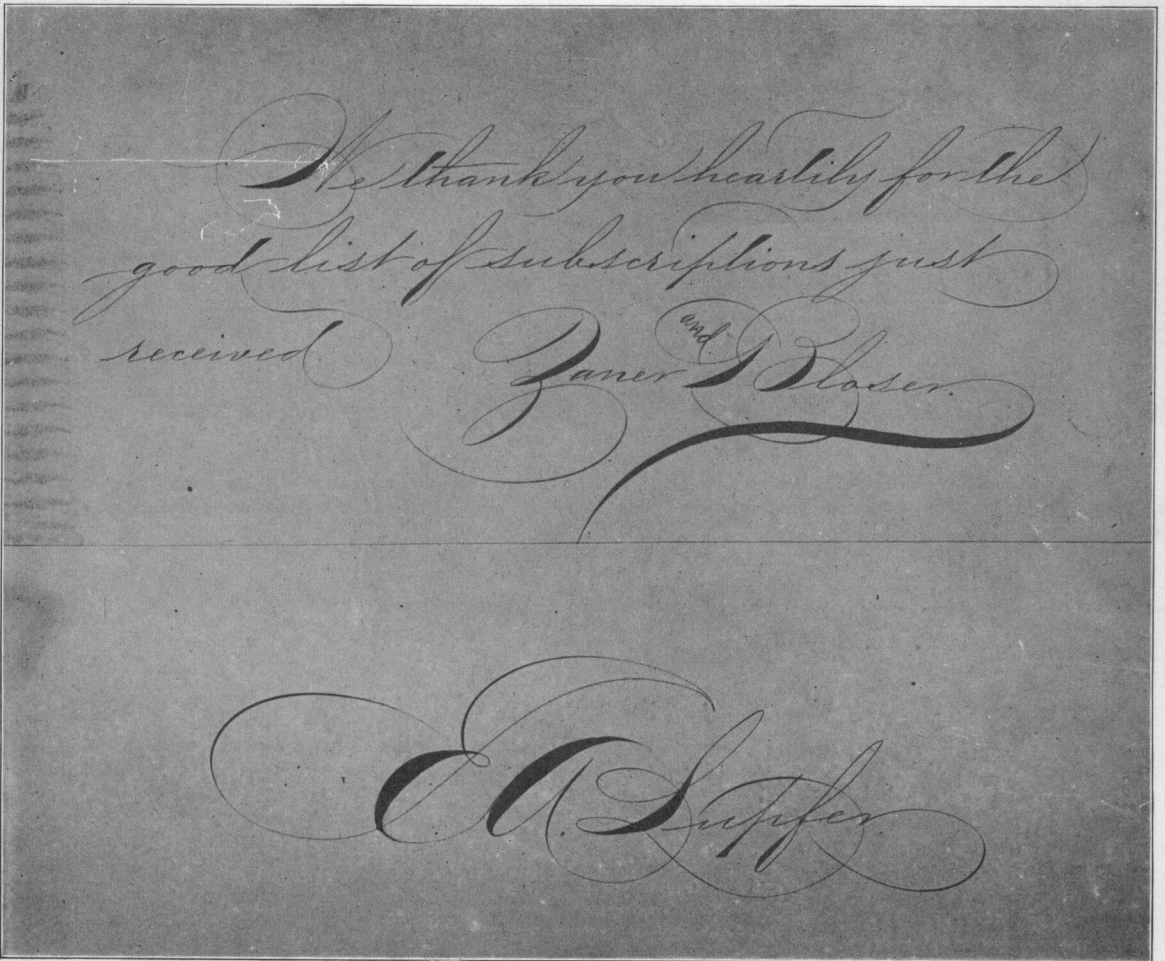 We thank you heartily for the
good list of subscriptions just
received.
Zaner and Bloser.
E. A. Lupfer.